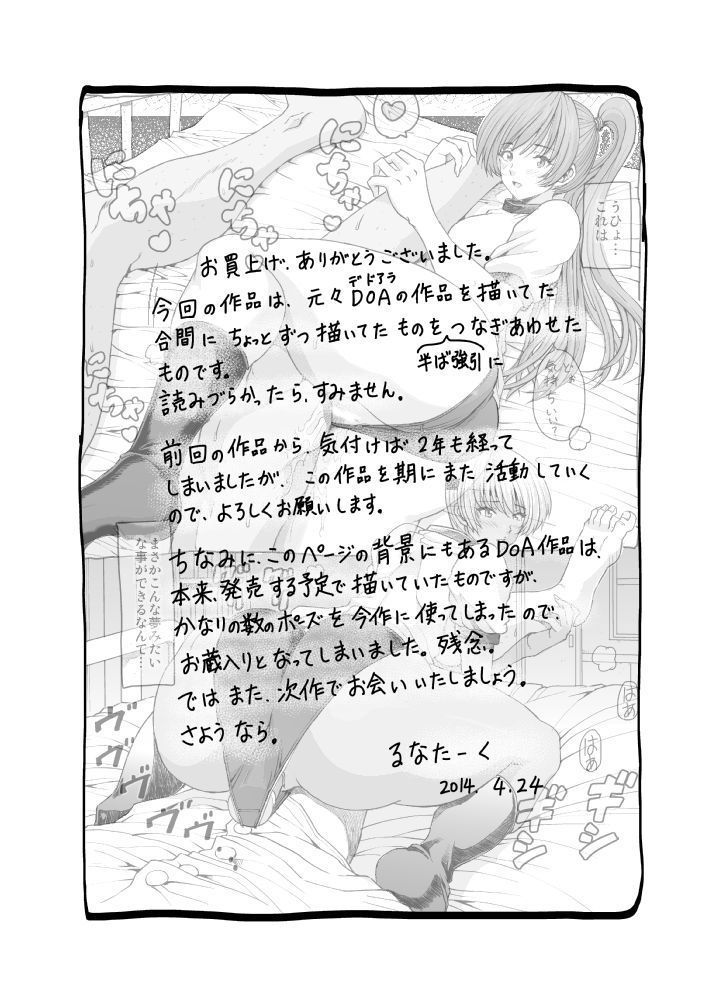 お買上げ、ありがとうございました。
今回の作品は、元々DOAの作品を描いてた
デドアラ
合間にちょっとずつ描いてたものをつなぎあわせた
半ば強引に
ものです。
読みづらかったら、すみません。
前回の作品から、気付けば2年も経って
しまいましたが、この作品を期にまた活動していく
ので、よろしくお願いします。
ちなみに、このページの背景にもあるDOA作品は、
本来、発売する予定で描いていたものですが、
かなりの数のポーズを今作に使ってしまったので、
お蔵入りとなってしまいました。残念。
ではまた、次作でお会いいたしましょう。
さようなら。
るなたーく
2014. 4.24
うひょ…
これは
にちゃ
にちゃ
にちゃ
気持ちいい?
まさかこんな夢みたい
な事ができるなんて…
はぁ
はぁ
ヴヴ
ヴヴ
ギシ
ギシ